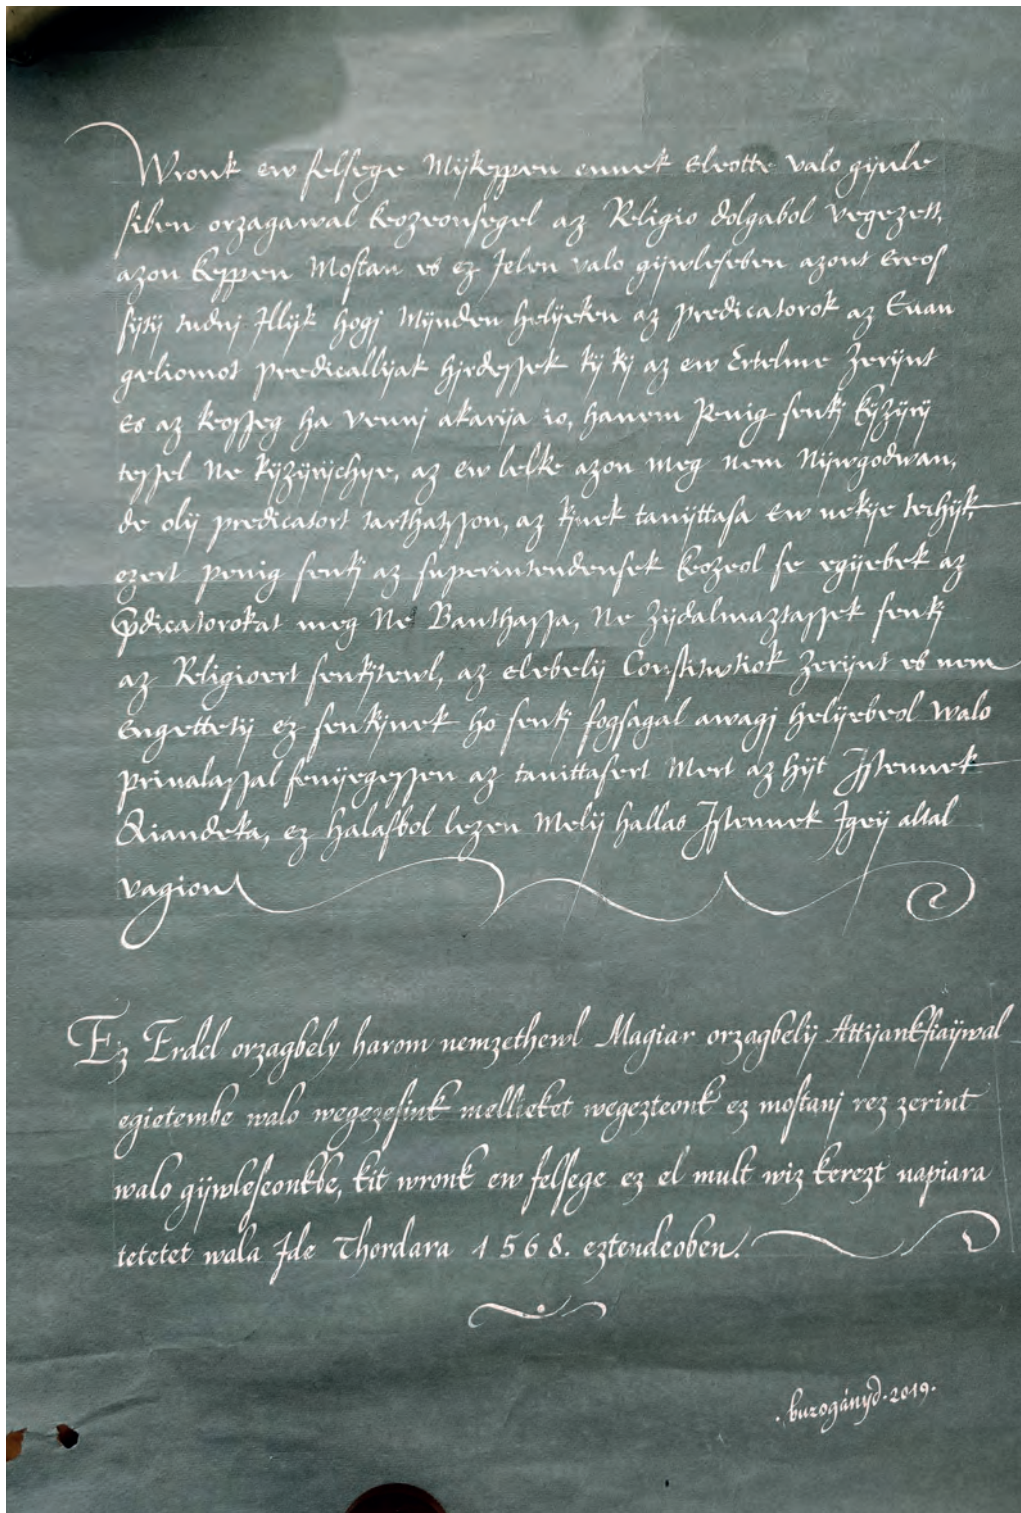 Wronk ew felsege Mijkeppen ennek Eleotte valo gijule
siben orzagawal keozeonsegel az Religio dolgabol vegezett,
azon keppen Mostan es ez Jelen valo gijwleseben azont Ereos
sijtij tudnj Jllijk hogj Mijnden helijeken az predicatorok az Euan
geliomot predicallijak hjrdessek kj kj az ew Ertelme zerijnt
Es az keosseg ha vennj akarija io, hanem penig senkj kijzijrij
tessel Ne kijzijrijchye, az ew lelke azon meg nem Nijwgodwan,
de olij predicatort tarthasson, az kjnek tanijttasa Ew nekje teczhijk,
ezert penig senkj az superintendensek keozeol se egijebek az
pdicatorokat meg Ne Banthassa, Ne zijdalmaztassek senkj
az Religioert senkjtewl, az elebelij Constitutiok zerijnt es nem
Engettetij ez senkijnek ho senkj fogsagal awagj helijebeol walo
priualassal fenijegessen az tanittasert Mert az hijt Jstennek
Aiandeka, ez halasbol lezen Melij hallas Jstennek Jgeij altal
vagion
Ez Erdel orzagbely harom nemzethewl Magiar orzagbelij Attijanksiaijwal
egietembe walo wegezesink mellieket wegezteonk ez mostanj rez zerint
walo gijwleseonkbe, kit wronk ew felsege ez el mult wiz kerezt napiara
tetetet wala Jde Thordara 1568. eztendeoben.
. buzogányd. 2019.